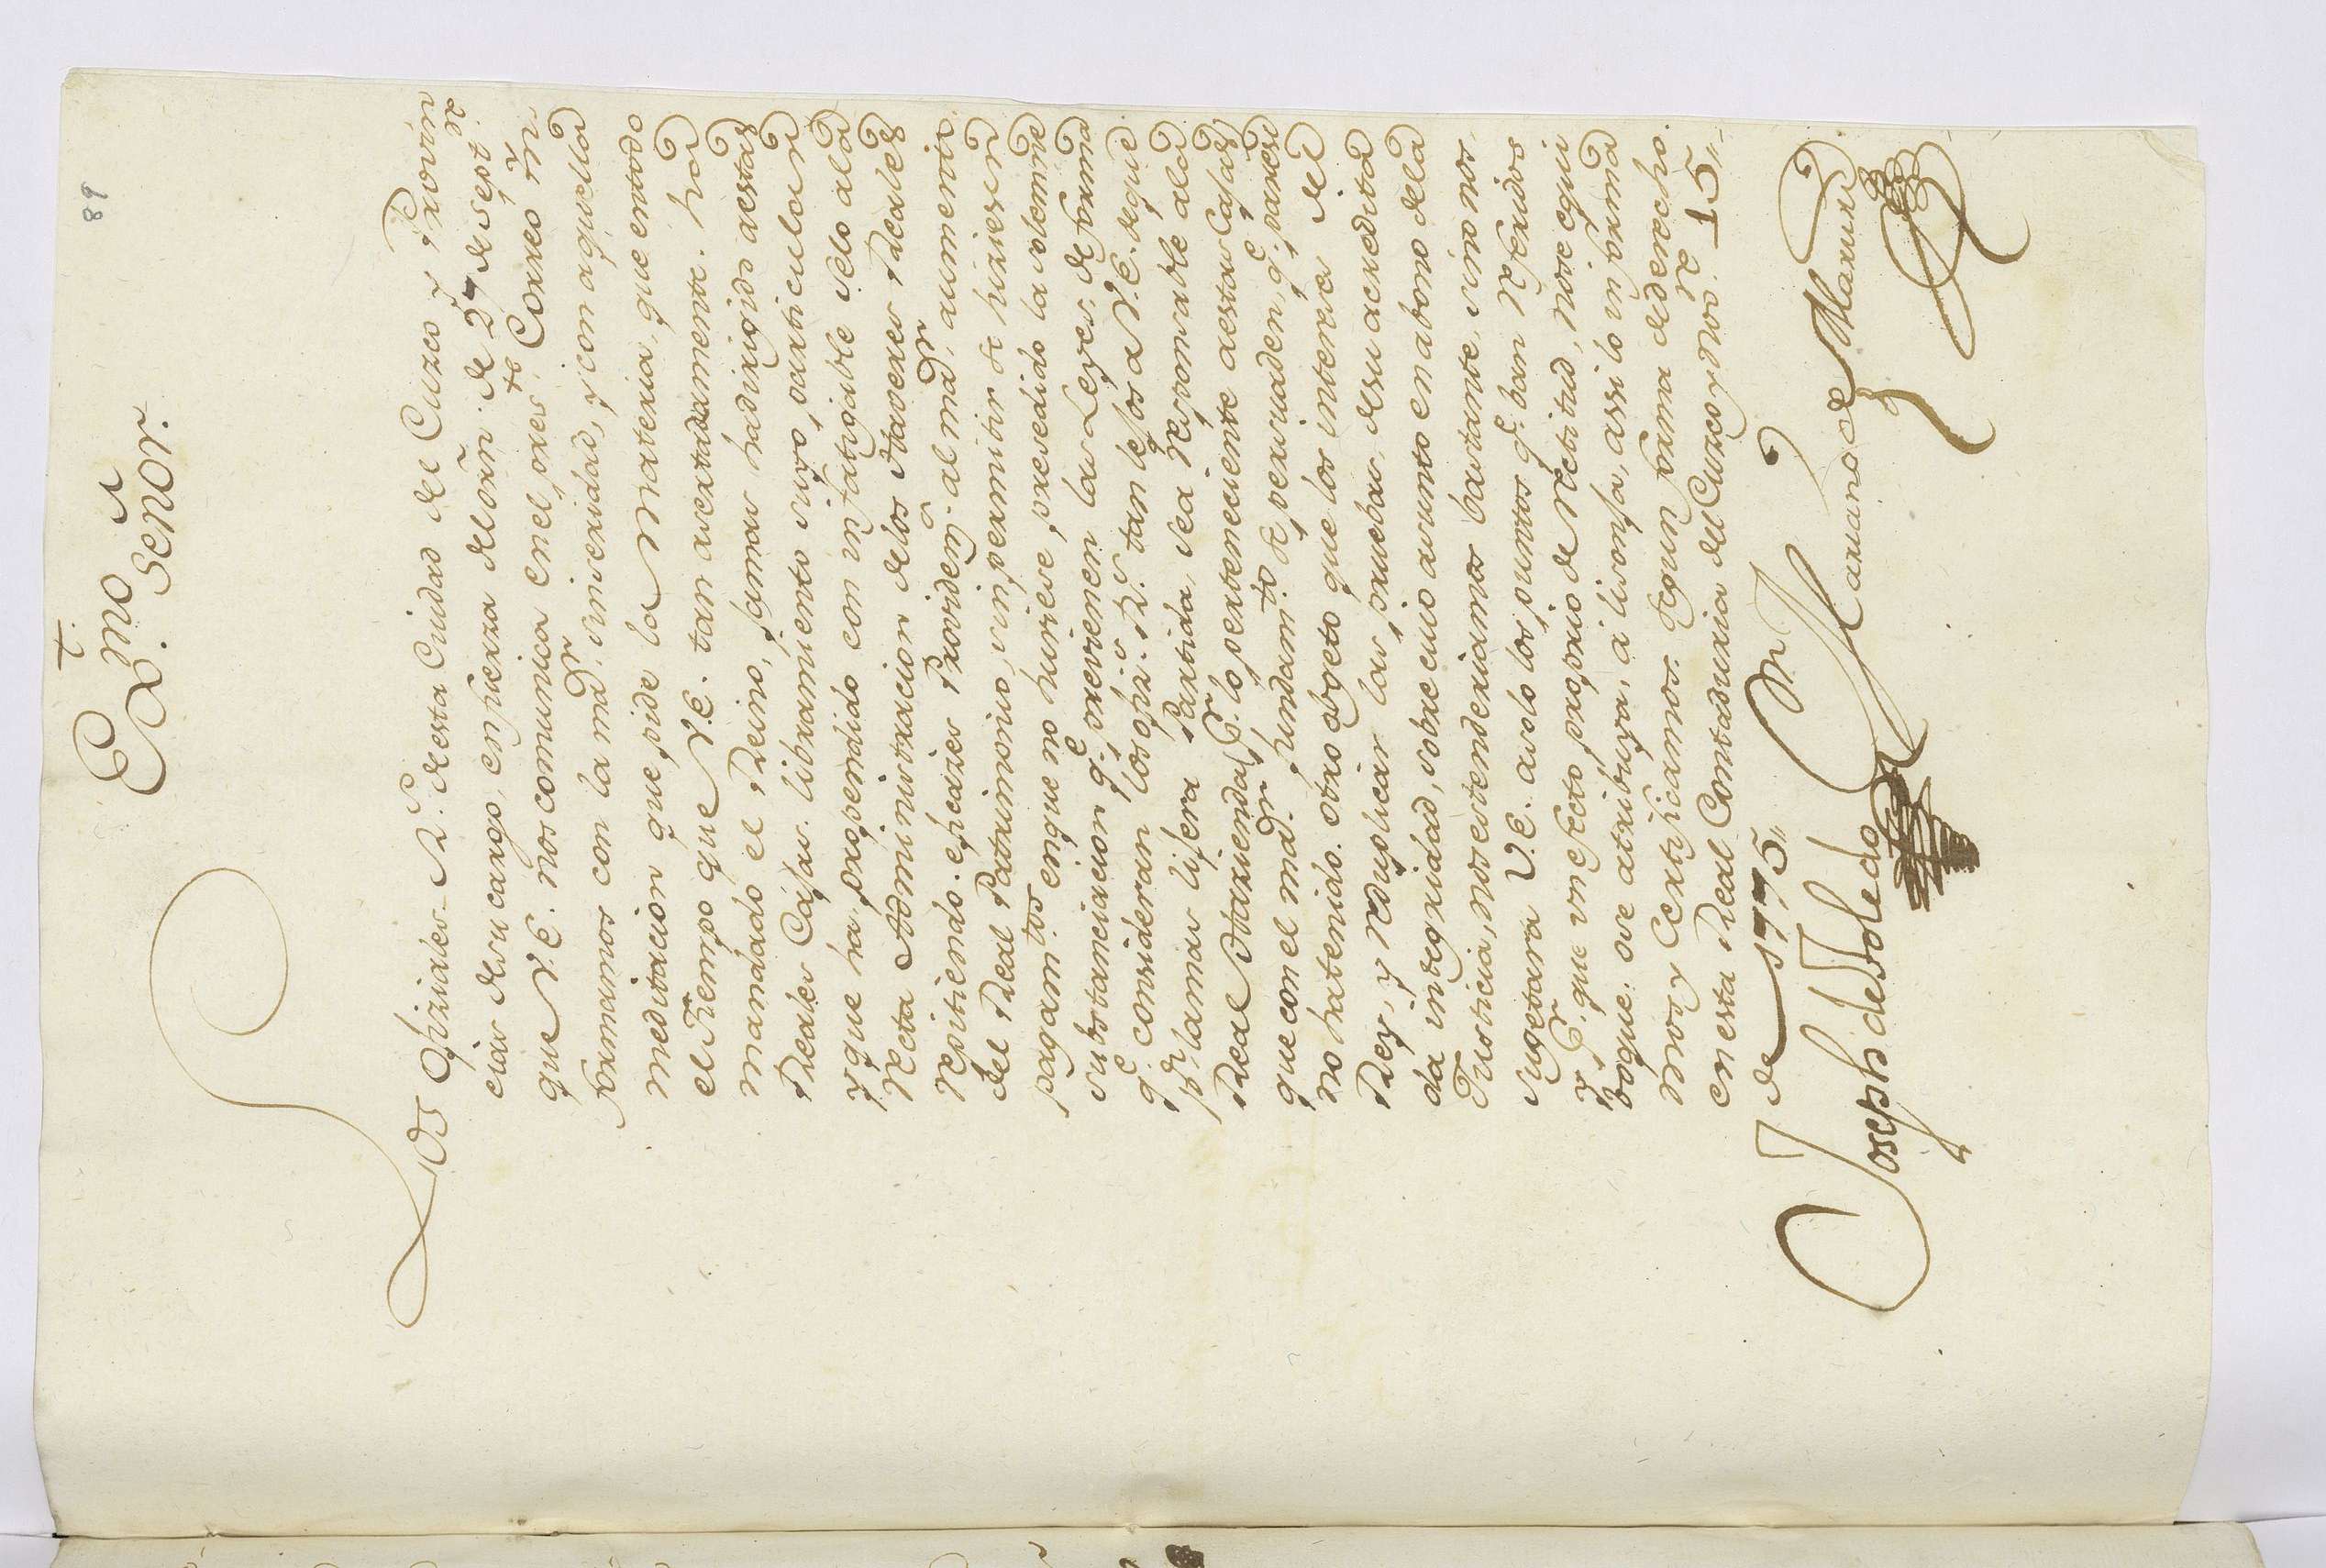 89
†
Exmo. Señor.
Los ofiziales R.s de esta Ciudad del Cuzco y Provin
cias de su cargo, en fuerza del orñ. de 27 de Sept.re
que V.E. nos comunica en el pres.to Correo Yn
formamos con la mãdr. sinseridad, y con aquella
meditacion que pide la materia, que en todo
el Tiempo que V.E. tan asertadamente. há
mandado el Reino, jamas ha dirixido a estas
Reales Cajas. libramiento suyo, particular
y que ha propendido con infatigable selo a la
recta Administracion de los Haveres Reales
repitiendo. eficazes Provideñ.s al mãdr. aumento
del Real Patrimonio, sin permitir se hiziesen
pagam.tos en que no huviese, presedido la solemne
substanciacion q.e previenen las Leyes, de forma
q.e consideran los ofiz.s R.s tan lejos a V.E. de que
p.r la mas lijera Partida, sea responsable a la
Real Hazienda P.r lo perteneciente a estas Cajas
que con el mãdr. fundam.to se persuaden, q.e parese
no ha tenido. otro objeto que los intereses del
Rey, y reduplicar las pruebas, de su acredita
da integridad, sobre cuio asunto en abono de la
Justicia, nos estenderiamos bastante, si no nos
sugetara V.E. a solo los puntos q.e ban referidos
y P.r que un efecto proprio de rectitud, no se equi
boque. o se atribuya, á lisonja, assi lo informa
mos y Certificamos segun forma de derecho.
en esta Real Contaduria del Cuzco y Nov.re 15,,
de 1775,,
Joseph de Toledo
Mariano de Maruri